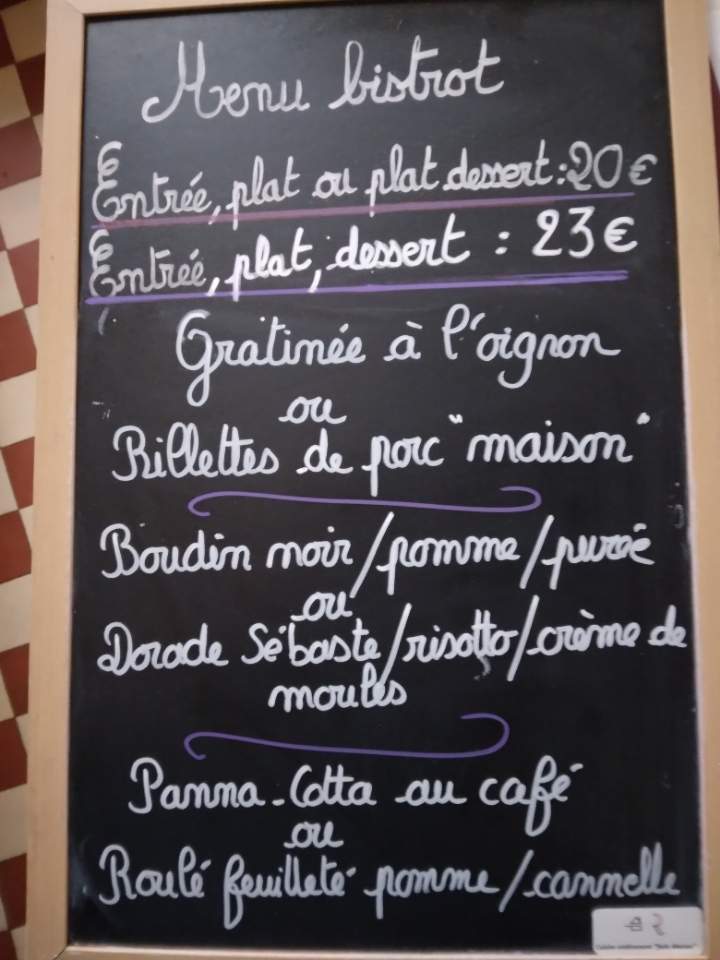 Menu bistrot
Entrée, plat ou plat dessert : 20 €
Entrée, plat, dessert : 23 €
Gratinée à l'oignon
ou
Rillettes de porc "maison"
Boudin noir / pomme / purée
ou
Dorade Sébaste / risotto / crème de
moules
Panna-Cotta au café
ou
Roulé feuilleté pomme / cannelle